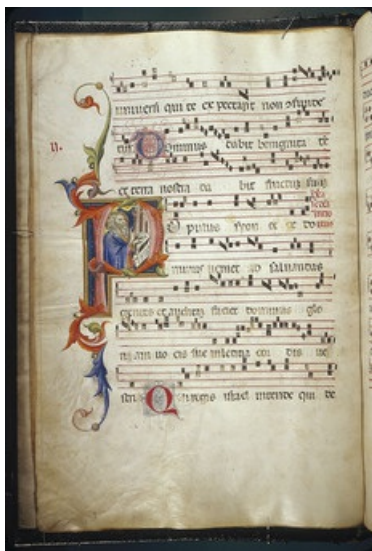 universi qui te expectant non ꝯfunde
tur Ominus dabit benignita tē
et terra nostra da bit fructum suū
Opulus syon ec ce do
minus veniet ad salvandas
gentes et auditam faciet dominus glo
ri am vo cis sue in letitia cor dis ve
stri Qui regis israel intende qui de